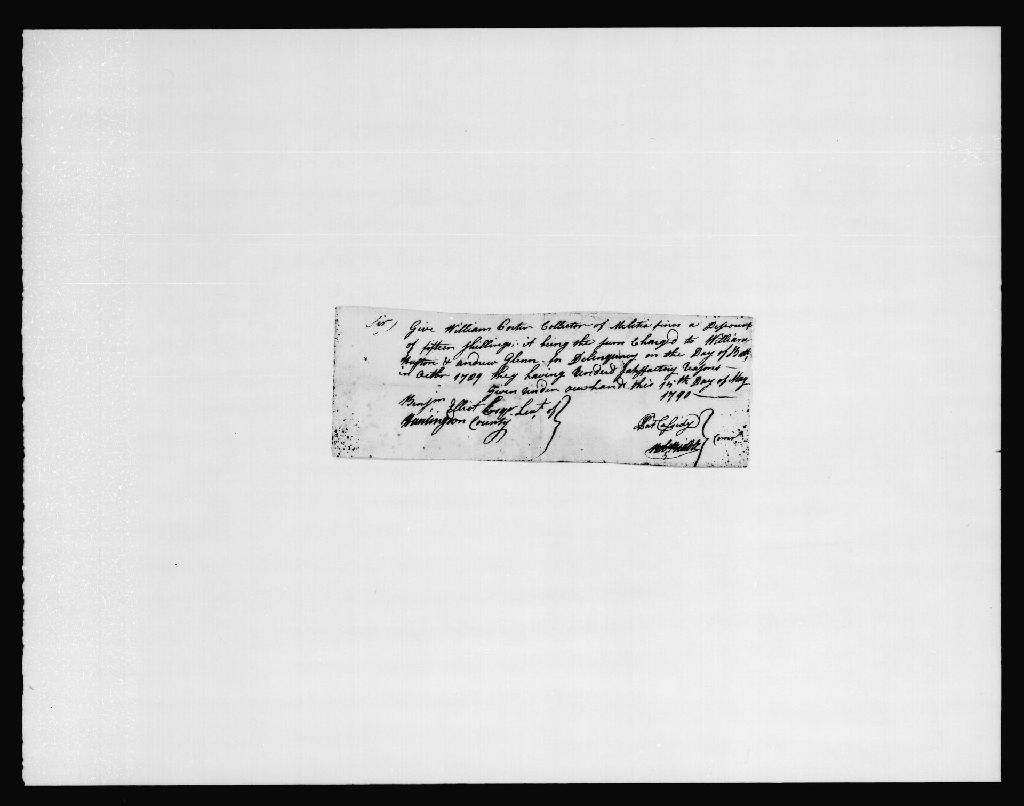 Sir / Give William Porter Collector of Melitia fines a Discount
of fifteen Shillings it being the sum Charged to William
& andrew Glenn for Delinquency on the Day of
in octbr 1789 they having Satisfactory reasons —
Given under our hands this 14th Day of May
1790
Benjm Elliot Esqr. Lieut. of
Huntingdon County
Pat Cassidy
Comrs